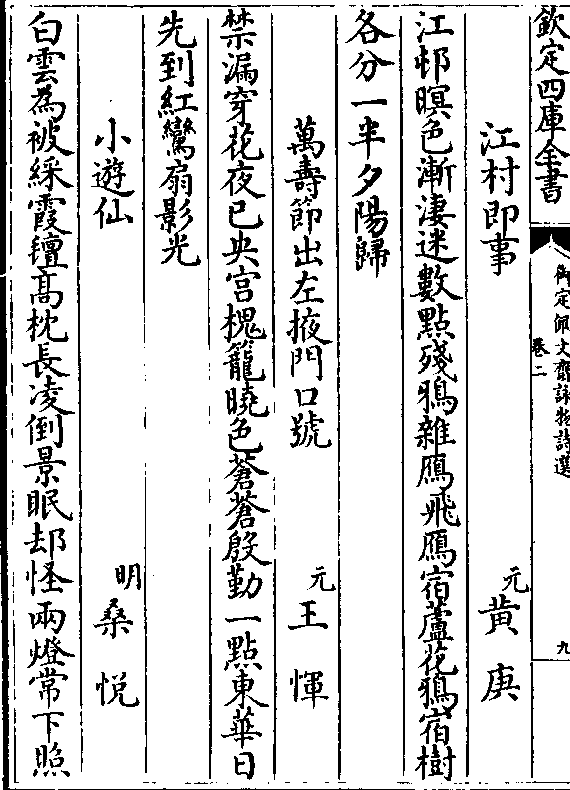 欽定四庫全書
御定佩文齋詠物詩選
卷二
九
江村即事
元黃庚
江邨暝色漸淒迷數點殘鴉雜鴈飛鴈宿蘆花鴉宿樹
各分一半夕陽歸
萬壽節出左掖門口號
元王惲
禁漏穿花夜已央宮槐籠曉色蒼蒼殷勤一點東華日
先到紅鸞扇影光
小遊仙
明桑悅
白雲為被綵霞氊髙枕長凌倒景眠却怪兩燈常下照